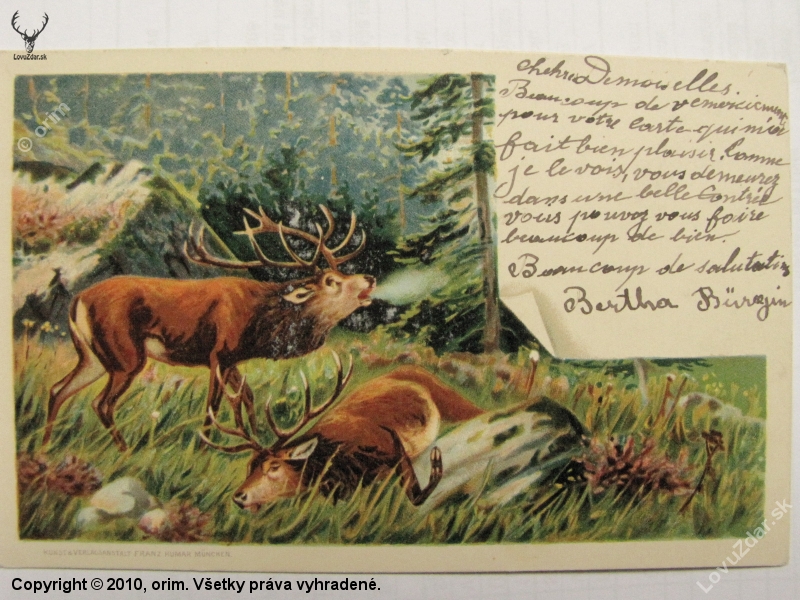 LovuZdar.sk
© orim
chehres Demoiselles.
Beaucoup de remerciements
pour votre carte qui m'a
fait bien plaisir. Comme
je le vois, vous demeurez
dans une belle Contrée
vous pouvez vous faire
beaucoup de bien.
Beaucoup de salutations
Bertha
KUNST & VERLAGSANSTALT FRANZ HUMAR MÜNCHEN
LovuZdar.sk
Copyright © 2010, orim. Všetky práva vyhradené.